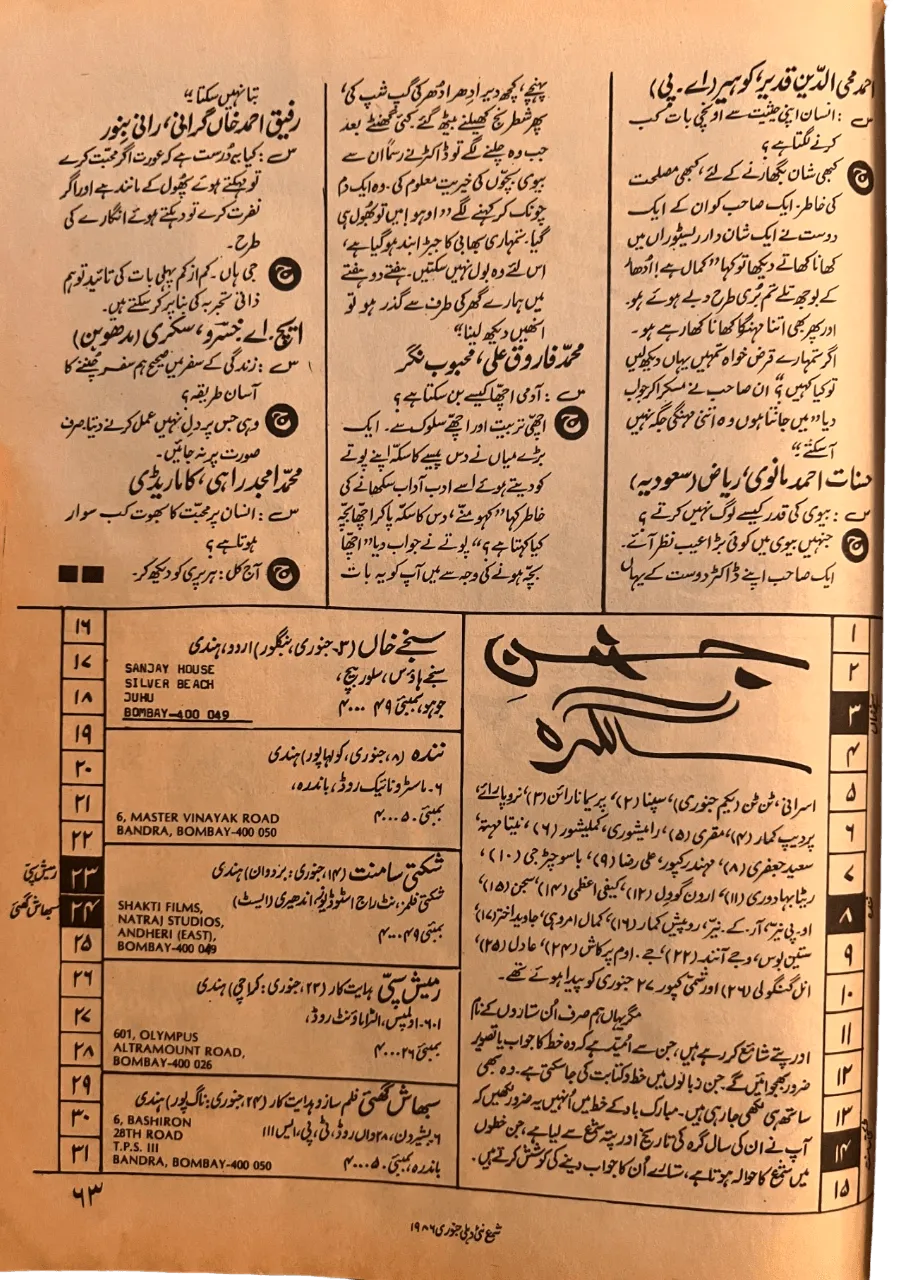 احمد محی الدّین قدیر، کوہیر (اے۔ پی)
س : انسان اپنی حیثیت سے اونچی بات کب
کرنے لگتا ہے؟
ج کبھی شان بگھارنے کے لئے، کبھی مصلحت
کی خاطر۔ ایک صاحب کو ان کے ایک
دوست نے ایک شان دار ریسٹوراں میں
کھانا کھاتے دیکھا تو کہا "کمال ہے! اُدھار
کے بوجھ تلے تم بُری طرح دبے ہوئے ہو۔
اور پھر بھی اتنا مہنگا کھانا کھا رہے ہو۔
اگر تمہارے قرض خواہ تمہیں یہاں دیکھ لیں
تو کیا کہیں؟" ان صاحب نے مسکرا کر جواب
دیا "میں جانتا ہوں وہ اتنی مہنگی جگہ نہیں
آسکتے"
حسنات احمد مانوی، ریاض (سعودیہ)
س : بیوی کی قدر کیسے لوگ نہیں کرتے؟
ج جنہیں بیوی میں کوئی بڑا عیب نظر آئے۔
ایک صاحب اپنے ڈاکٹر دوست کے یہاں
پہنچے، کچھ دیر اِدھر اُدھر کی گپ شپ کی،
پھر شطرنج کھیلنے بیٹھ گئے۔ کئی گھنٹے بعد
جب وہ چلنے لگے تو ڈاکٹر نے رسماً ان سے
بیوی بچّوں کی خیریت معلوم کی۔ وہ ایک دم
چونک کر کہنے لگے "اوہو! میں تو بُھول ہی
گیا۔ تمہاری بھابی کا جبڑا بند ہو گیا ہے،
اس لئے وہ بول نہیں سکتیں۔ ہفتے دو ہفتے
میں ہمارے گھر کی طرف سے گذر ہو تو
انھیں دیکھ لینا"
محمّد فاروق علی، محبوب نگر
س : آدمی اچّھا کیسے بن سکتا ہے؟
ج اچّھی تربیت اور اچّھے سلوک سے۔ ایک
بڑے میاں نے دس پیسے کا سکّہ اپنے پوتے
کو دیتے ہوئے اسے ادب آداب سکھانے کی
خاطر کہا "کہو منّے، دس کا سکّہ پا کر اچھا بچّہ
کیا کہتا ہے؟" پوتے نے جواب دیا "اچھا
بچّہ ہونے کی وجہ سے میں آپ کو یہ بات
بتا نہیں سکتا"
رفیق احمد خاں گرانی، رانی بنور
س : کیا یہ دُرست ہے کہ عورت اگر محبّت کرے
تو مہکتے ہوئے پُھول کے مانند ہے اور اگر
نفرت کرے تو دہکتے ہوئے انگارے کی
طرح۔
ج جی ہاں۔ کم از کم پہلی بات کی تائید تو ہم
ذاتی تجربہ کی بنا پر کر سکتے ہیں۔
ایچ۔ اے خسرو، سکری (مدھوبن)
س : زندگی کے سفر میں صحیح ہم سفر چُننے کا
آسان طریقہ؟
ج وہی جس پر دل نہیں عمل کرنے دیتا، صرف
صورت پر نہ جائیں۔
محمّد امجد راہی، کاماریڈی
س : انسان پر محبّت کا بھوت کب سوار
ہوتا ہے؟
ج آج کل : ہر پری کو دیکھ کر۔
۱
۲
۳
۴
۵
۶
۷
۸
۹
۱۰
۱۱
۱۲
۱۳
۱۴
۱۵
جشنِ
سالگرہ
اسرانی، ٹن ٹن (یکم جنوری)، سپنا (۲)، پرسیا نارائن (۳)، نروپا رائے،
پردیپ کمار (۴)، مقری (۵)، رامیشوری، کملیشور (۶)، نیتا مہتہ،
سعید جعفری (۸)، مہندر کپور، علی رضا (۹)، باسو چٹرجی (۱۰)،
ریٹا بہادوری (۱۱)، ارون گوول (۱۲)، کیفی اعظمی (۱۴)، سجن (۱۵)،
او۔ پی نیّر، آر۔ کے۔ نیّر، روپیش کمار (۱۶)، کمال امروہی، جاوید اختر (۱۷)،
ستین بوس، وجے آنند (۲۲)، جے۔ اوم پرکاش (۲۴)، عادل (۲۵)،
انل گنگولی (۲۶) اور شمّی کپور ۲۷ جنوری کو پیدا ہوئے تھے۔
مگر یہاں ہم صرف اُن ستاروں کے نام
اور پتے شائع کر رہے ہیں، جن سے اُمید ہے کہ وہ خط کا جواب یا تصویر
ضرور بھجوائیں گے۔ جن زبانوں میں خط و کتابت کی جا سکتی ہے۔ وہ بھی
ساتھ ہی لکھی جا رہی ہیں۔ مبارک باد کے خط میں انہیں یہ ضرور لکھیں کہ
آپ نے ان کی سال گرہ کی تاریخ اور پتہ شمع سے لیا ہے، جن خطوں
میں شمع کا حوالہ ہوتا ہے، ستارے اُن کا جواب دینے کی کوشش کرتے ہیں۔
سنجے خاں (۳۔ جنوری، بنگلور) اردو، ہندی
سنجے ہاؤس، سلور بیچ،
جوہو، بمبئی ۴۹ ۴۰۰۰
SANJAY HOUSE
SILVER BEACH
JUHU
BOMBAY-400 049
نندہ (۸، جنوری، کولہاپور) ہندی
۶۔ ماسٹر ونائیک روڈ، باندرہ،
بمبئی ۴۰۰۰۵۰
6, MASTER VINAYAK ROAD
BANDRA, BOMBAY-400 050
شکتی سامنت (۱۴، جنوری : بردوان) ہندی
شکتی فلمز، نٹ راج اسٹوڈیو، اندھیری (ایسٹ)
بمبئی ۴۹ ۴۰۰۰
SHAKTI FILMS,
NATRAJ STUDIOS,
ANDHERI (EAST),
BOMBAY-400 049
رمیش سپّی ہدایت کار (۲۳، جنوری : کراچی) ہندی
۶۰۱۔ اولمپس، الٹرا ماؤنٹ روڈ،
بمبئی ۴۰۰۰۲۶
601, OLYMPUS
ALTRAMOUNT ROAD,
BOMBAY-400 026
سبھاش گھئی فلم ساز و ہدایت کار (۲۴، جنوری : ناگ پور) ہندی
۶ بشیرون، ۲۸ واں روڈ، ٹی، پی، ایس ااا
باندرہ، بمبئی ۴۰۰۰۵۰
6, BASHIRON
28TH ROAD
T.P.S. III
BANDRA, BOMBAY-400 050
۱۶
۱۷
۱۸
۱۹
۲۰
۲۱
۲۲
۲۳ رمیش سپّی
۲۴ سبھاش گھئی
۲۵
۲۶
۲۷
۲۸
۲۹
۳۰
۳۱
۶۳
شمع نئی دہلی جنوری ۱۹۸۶